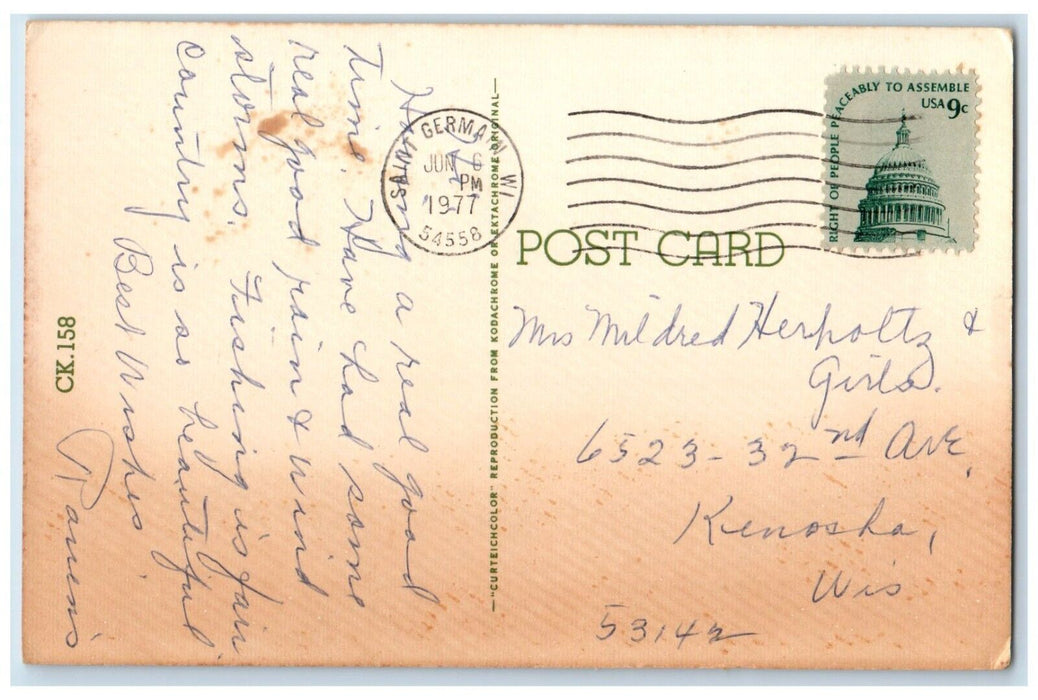 Having a real good
time. Have had some
real good rain & wind
storms. Fishing is fair
country is so beautiful
Best Wishes
CK.158
"CURTEICHCOLOR" REPRODUCTION FROM KODACHROME OR EKTACHROME ORIGINAL
SAINT GERMAIN WI
JUN 6
PM
1977
54558
RIGHT OF PEOPLE PEACEABLY TO ASSEMBLE
USA 9c
POST CARD
Mrs Mildred Herholtz &
Girls.
6523-32nd Ave,
Kenosha,
Wis
53142